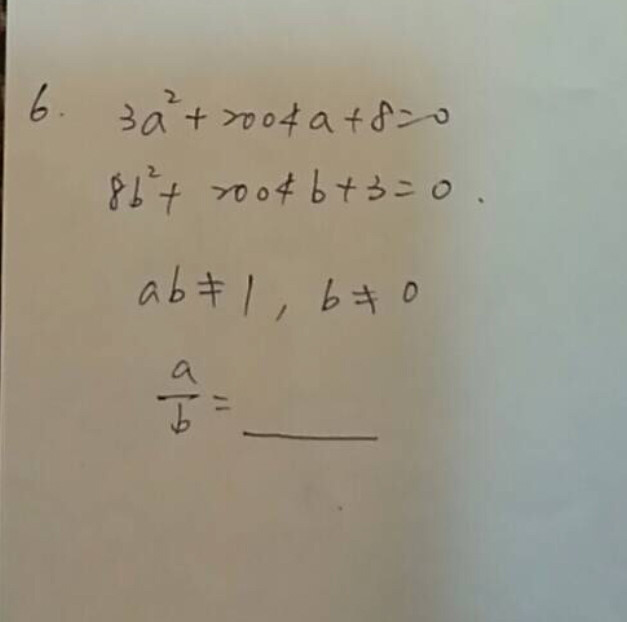 6. 3a²+2004a+8=0
8b²+ 2004b+3=0.
ab≠1, b≠0
a/b=____